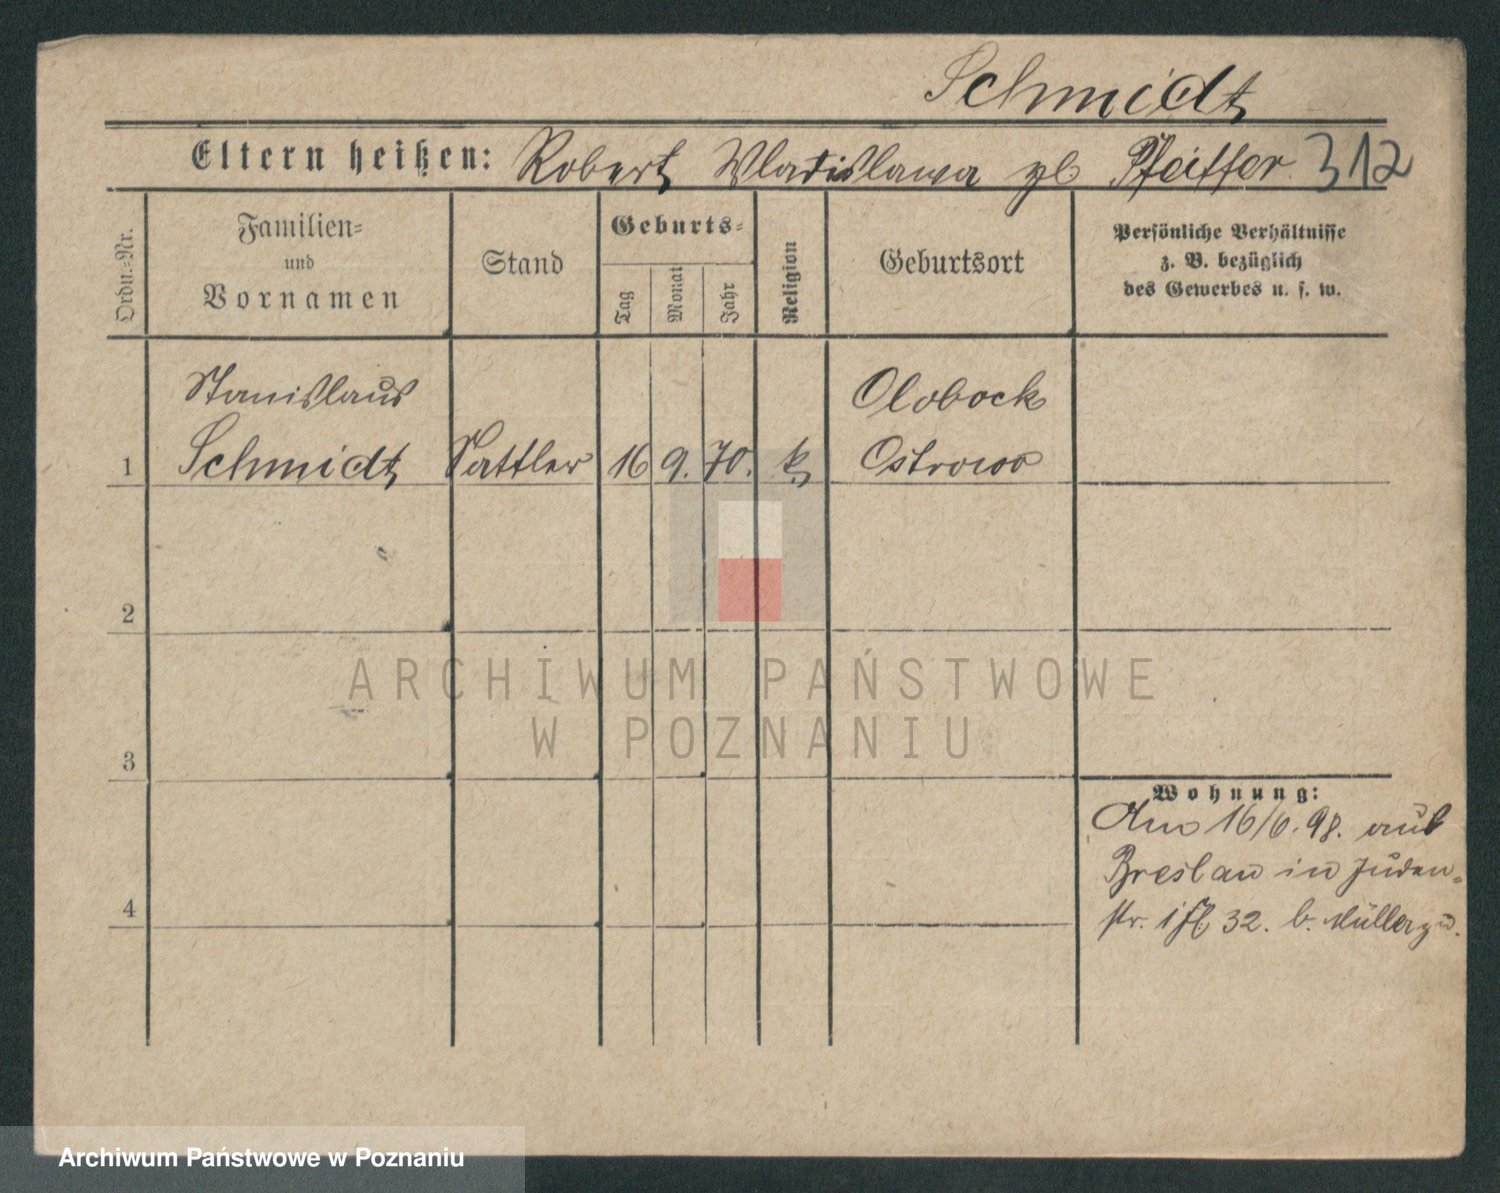 Schmidt
Eltern heißen: Robert Wladislawa gb Pfeiffer 312
Ordn.-Nr.
Familien-
und
Vornamen
Stand
Geburts-
Tag
Monat
Jahr
Religion
Geburtsort
Persönliche Verhältnisse
z. B. bezüglich
des Gewerbes u. s. w.
Stanislaus Olobock
1 Schmidt Sattler 16 9. 70. k Ostrowo
2
ARCHIWUM PAŃSTWOWE
W POZNANIU
3
Wohnung:
Am 16/6. 98. aus
Breslau in Juden-
4
str. 32. b. Müller
Archiwum Państwowe w Poznaniu